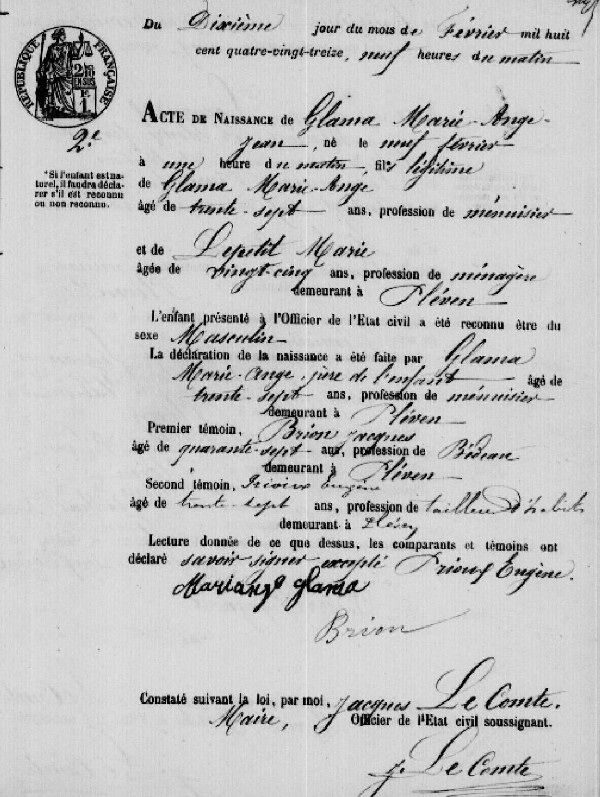 Du Dixième jour du mois de Février mil huit
cent quatre-vingt-treize, neuf heures du matin
RÉPUBLIQUE FRANÇAISE
2/10 EN SUS
1
2.e
*Si l'enfant est na-
turel, il faudra décla-
rer s'il est reconnu
ou non reconnu.
ACTE DE NAISSANCE de Glama Marie-Ange-
Jean, né le neuf février
à une heure du matin, fils légitime
de Glama Marie-Ange
âgé de trente-sept ans, profession de ménuisier
et de Lepetit Marie
âgée de vingt-cinq ans, profession de ménagère
demeurant à Pléven
L'enfant présenté à l'Officier de l'Etat civil a été reconnu être du
sexe Masculin
La déclaration de la naissance a été faite par Glama
Marie-Ange, père de l'enfant âgé de
trente-sept ans, profession de ménuisier
demeurant à Pléven
Premier témoin, Brion Jacques
âgé de quarante-sept ans, profession de Bedeau
demeurant à Pléven
Second témoin, Eugène
âgé de trente-sept ans, profession de tailleur d'habits
demeurant à
Lecture donnée de ce que dessus, les comparants et témoins ont
déclaré savoir signer excepté Trioux Eugène.
Mariange glama
Brion
Constaté suivant la loi, par moi, Jacques Le Comte.
Maire, Officier de l'Etat civil soussigné.
J. Le Comte